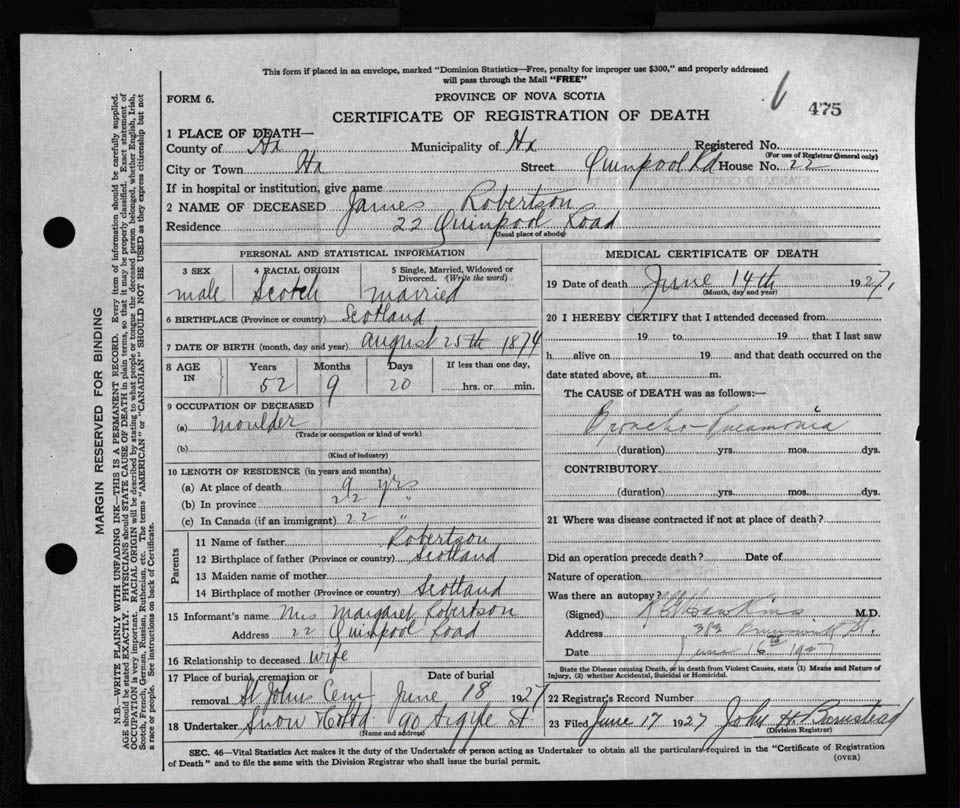 This form if placed in an envelope, marked "Dominion Statistics—Free, penalty for improper use $300," and properly addressed
will pass through the Mail "FREE"
475
FORM 6.
PROVINCE OF NOVA SCOTIA
CERTIFICATE OF REGISTRATION OF DEATH
1 PLACE OF DEATH—
County of Hx Municipality of Hx Registered No.
(For use of Registrar General only)
City or Town Hx Street Quinpool Rd House No. 22
If in hospital or institution, give name
2 NAME OF DECEASED James Robertson
Residence 22 Quinpool Road
(Usual place of abode)
PERSONAL AND STATISTICAL INFORMATION
3 SEX 4 RACIAL ORIGIN 5 Single, Married, Widowed or
Divorced. (Write the word)
male Scotch married
6 BIRTHPLACE (Province or country) Scotland
7 DATE OF BIRTH (month, day and year) August 25th 1874
8 AGE IN Years Months Days If less than one day,
52 9 20 hrs. or min.
9 OCCUPATION OF DECEASED
(a) Moulder
(Trade or occupation or kind of work)
(b)
(Kind of industry)
10 LENGTH OF RESIDENCE (in years and months)
(a) At place of death 9 yrs
(b) In province 22 "
(c) In Canada (if an immigrant) 22 "
Parents
11 Name of father Robertson
12 Birthplace of father (Province or country) Scotland
13 Maiden name of mother
14 Birthplace of mother (Province or country) Scotland
15 Informant's name Mrs Margaret Robertson
Address 22 Quinpool Road
16 Relationship to deceased wife
17 Place of burial, cremation or Date of burial
removal St Johns Cem June 18 1927
18 Undertaker Snow & Co Ltd 90 Argyle St
(Name and address)
MEDICAL CERTIFICATE OF DEATH
19 Date of death June 14th 1927.
(Month, day and year)
20 I HEREBY CERTIFY that I attended deceased from
19 to 19 , that I last saw
h alive on 19 and that death occurred on the
date stated above, at m.
The CAUSE of DEATH was as follows:—
Broncho-Pneumonia
(duration) yrs. mos. dys.
CONTRIBUTORY
(duration) yrs. mos. dys.
21 Where was disease contracted if not at place of death?
Did an operation precede death? Date of
Nature of operation
Was there an autopsy?
(Signed) Hawkins M.D.
Address 383 Brunswick St.
Date June 16th 1927
State the Disease causing Death, or in death from Violent Causes, state (1) Means and Nature of
Injury, (2) whether Accidental, Suicidal or Homicidal.
22 Registrar's Record Number
23 Filed June 17 1927 John H Barnstead
(Division Registrar)
SEC. 46—Vital Statistics Act makes it the duty of the Undertaker or person acting as Undertaker to obtain all the particulars required in the "Certificate of Registration
of Death" and to file the same with the Division Registrar who shall issue the burial permit.
(OVER)
MARGIN RESERVED FOR BINDING
N.B.—WRITE PLAINLY WITH UNFADING INK—THIS IS A PERMANENT RECORD. Every item of information should be carefully supplied.
AGE should be stated EXACTLY. PHYSICIANS should STATE CAUSE OF DEATH in plain terms, so that it may be properly classified. Exact statement of
OCCUPATION is very important. RACIAL ORIGIN will be described by stating to what people or tongue the deceased person belonged, whether English, Irish,
Scotch, French, German, Russian, Ruthenian, etc. The terms "AMERICAN" or "CANADIAN" SHOULD NOT BE USED as they express citizenship but not
a race or people. See instructions on back of Certificate.